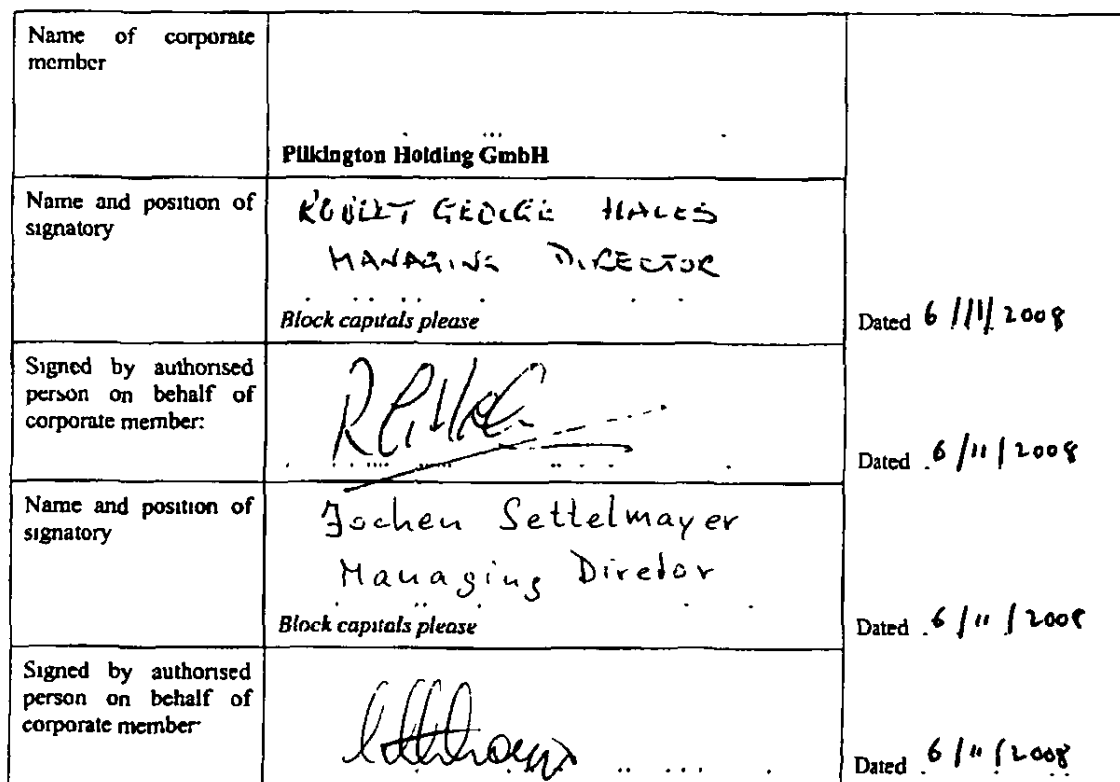 Name of corporate
member
Pilkington Holding GmbH
Name and position of
signatory
ROBERT GEORGE HALES
MANAGING DIRECTOR
Block capitals please
Dated 6/11/2008
Signed by authorised
person on behalf of
corporate member:
Dated 6/11/2008
Name and position of
signatory
Jochen Settelmayer
Managing Diretor
Block capitals please
Dated 6/11/2008
Signed by authorised
person on behalf of
corporate member
Dated 6/11/2008